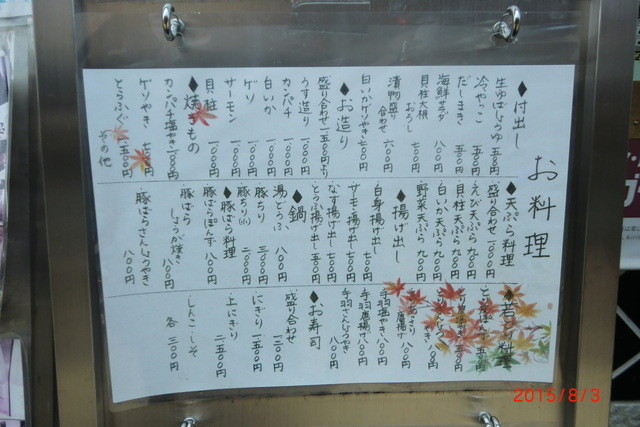 お料理
◆付出し
生ゆばしょうゆ 五〇〇円
冷やっこ
だしまき 五〇〇円
海鮮サラダ 八〇〇円
貝柱大根おろし 七〇〇円
漬物盛り合わせ 六〇〇円
白いかゲソやき 七〇〇円
◆お造り
盛り合わせ 一五〇〇円より
うす造り 一〇〇〇円
カンパチ 一〇〇〇円
白いか 一〇〇〇円
ゲソ
サーモン 一〇〇〇円
貝柱 一〇〇〇円
◆焼きもの
カンパチ塩やき 一〇〇〇円
ゲソやき 七〇〇円
とらふぐ 一五〇〇円
その他
◆天ぷら料理
盛り合わせ 一〇〇〇円
えび天ぷら 九〇〇円
貝柱天ぷら 九〇〇円
白いか天ぷら 九〇〇円
野菜天ぷら 九〇〇円
◆揚げ出し
白身揚げ出し 七〇〇円
サモ揚げ出し 七〇〇円
なす揚げ出し 七〇〇円
とうふ揚げ出し 五〇〇円
◆鍋
湯どうふ 八〇〇円
豚ちり 三〇〇〇円
豚ちり(小) 二〇〇〇円
◆豚ばら料理
豚ばらぽんず 八〇〇円
豚ばらしょうが焼き 八〇〇円
豚ばらさんしょうやき 八〇〇円
◆若どり料理
唐揚げ 八〇〇円
手羽塩やき 八〇〇円
手羽唐揚げ 八〇〇円
手羽さんしょうやき 八〇〇円
◆お寿司
盛り合わせ 一三〇〇円
にぎり 一五〇〇円
上にぎり 二五〇〇円
しんこ・しそ 各 三〇〇円
2015/8/3